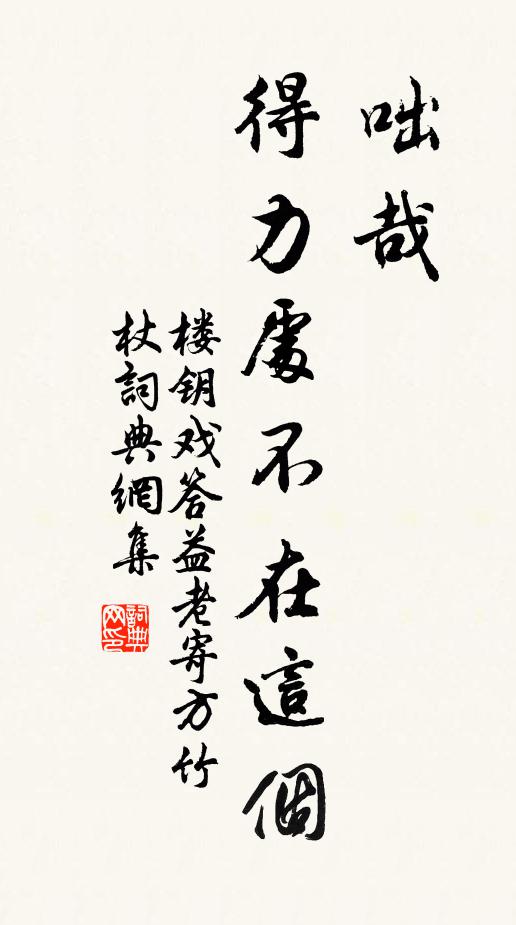 咄哉
得力處不在這個
楼钥戏答益老寄方竹
杖詞典網集
詞典网印